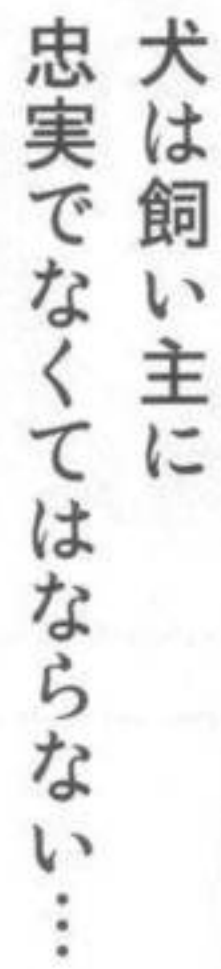 犬は飼い主に
忠実でなくてはならない…